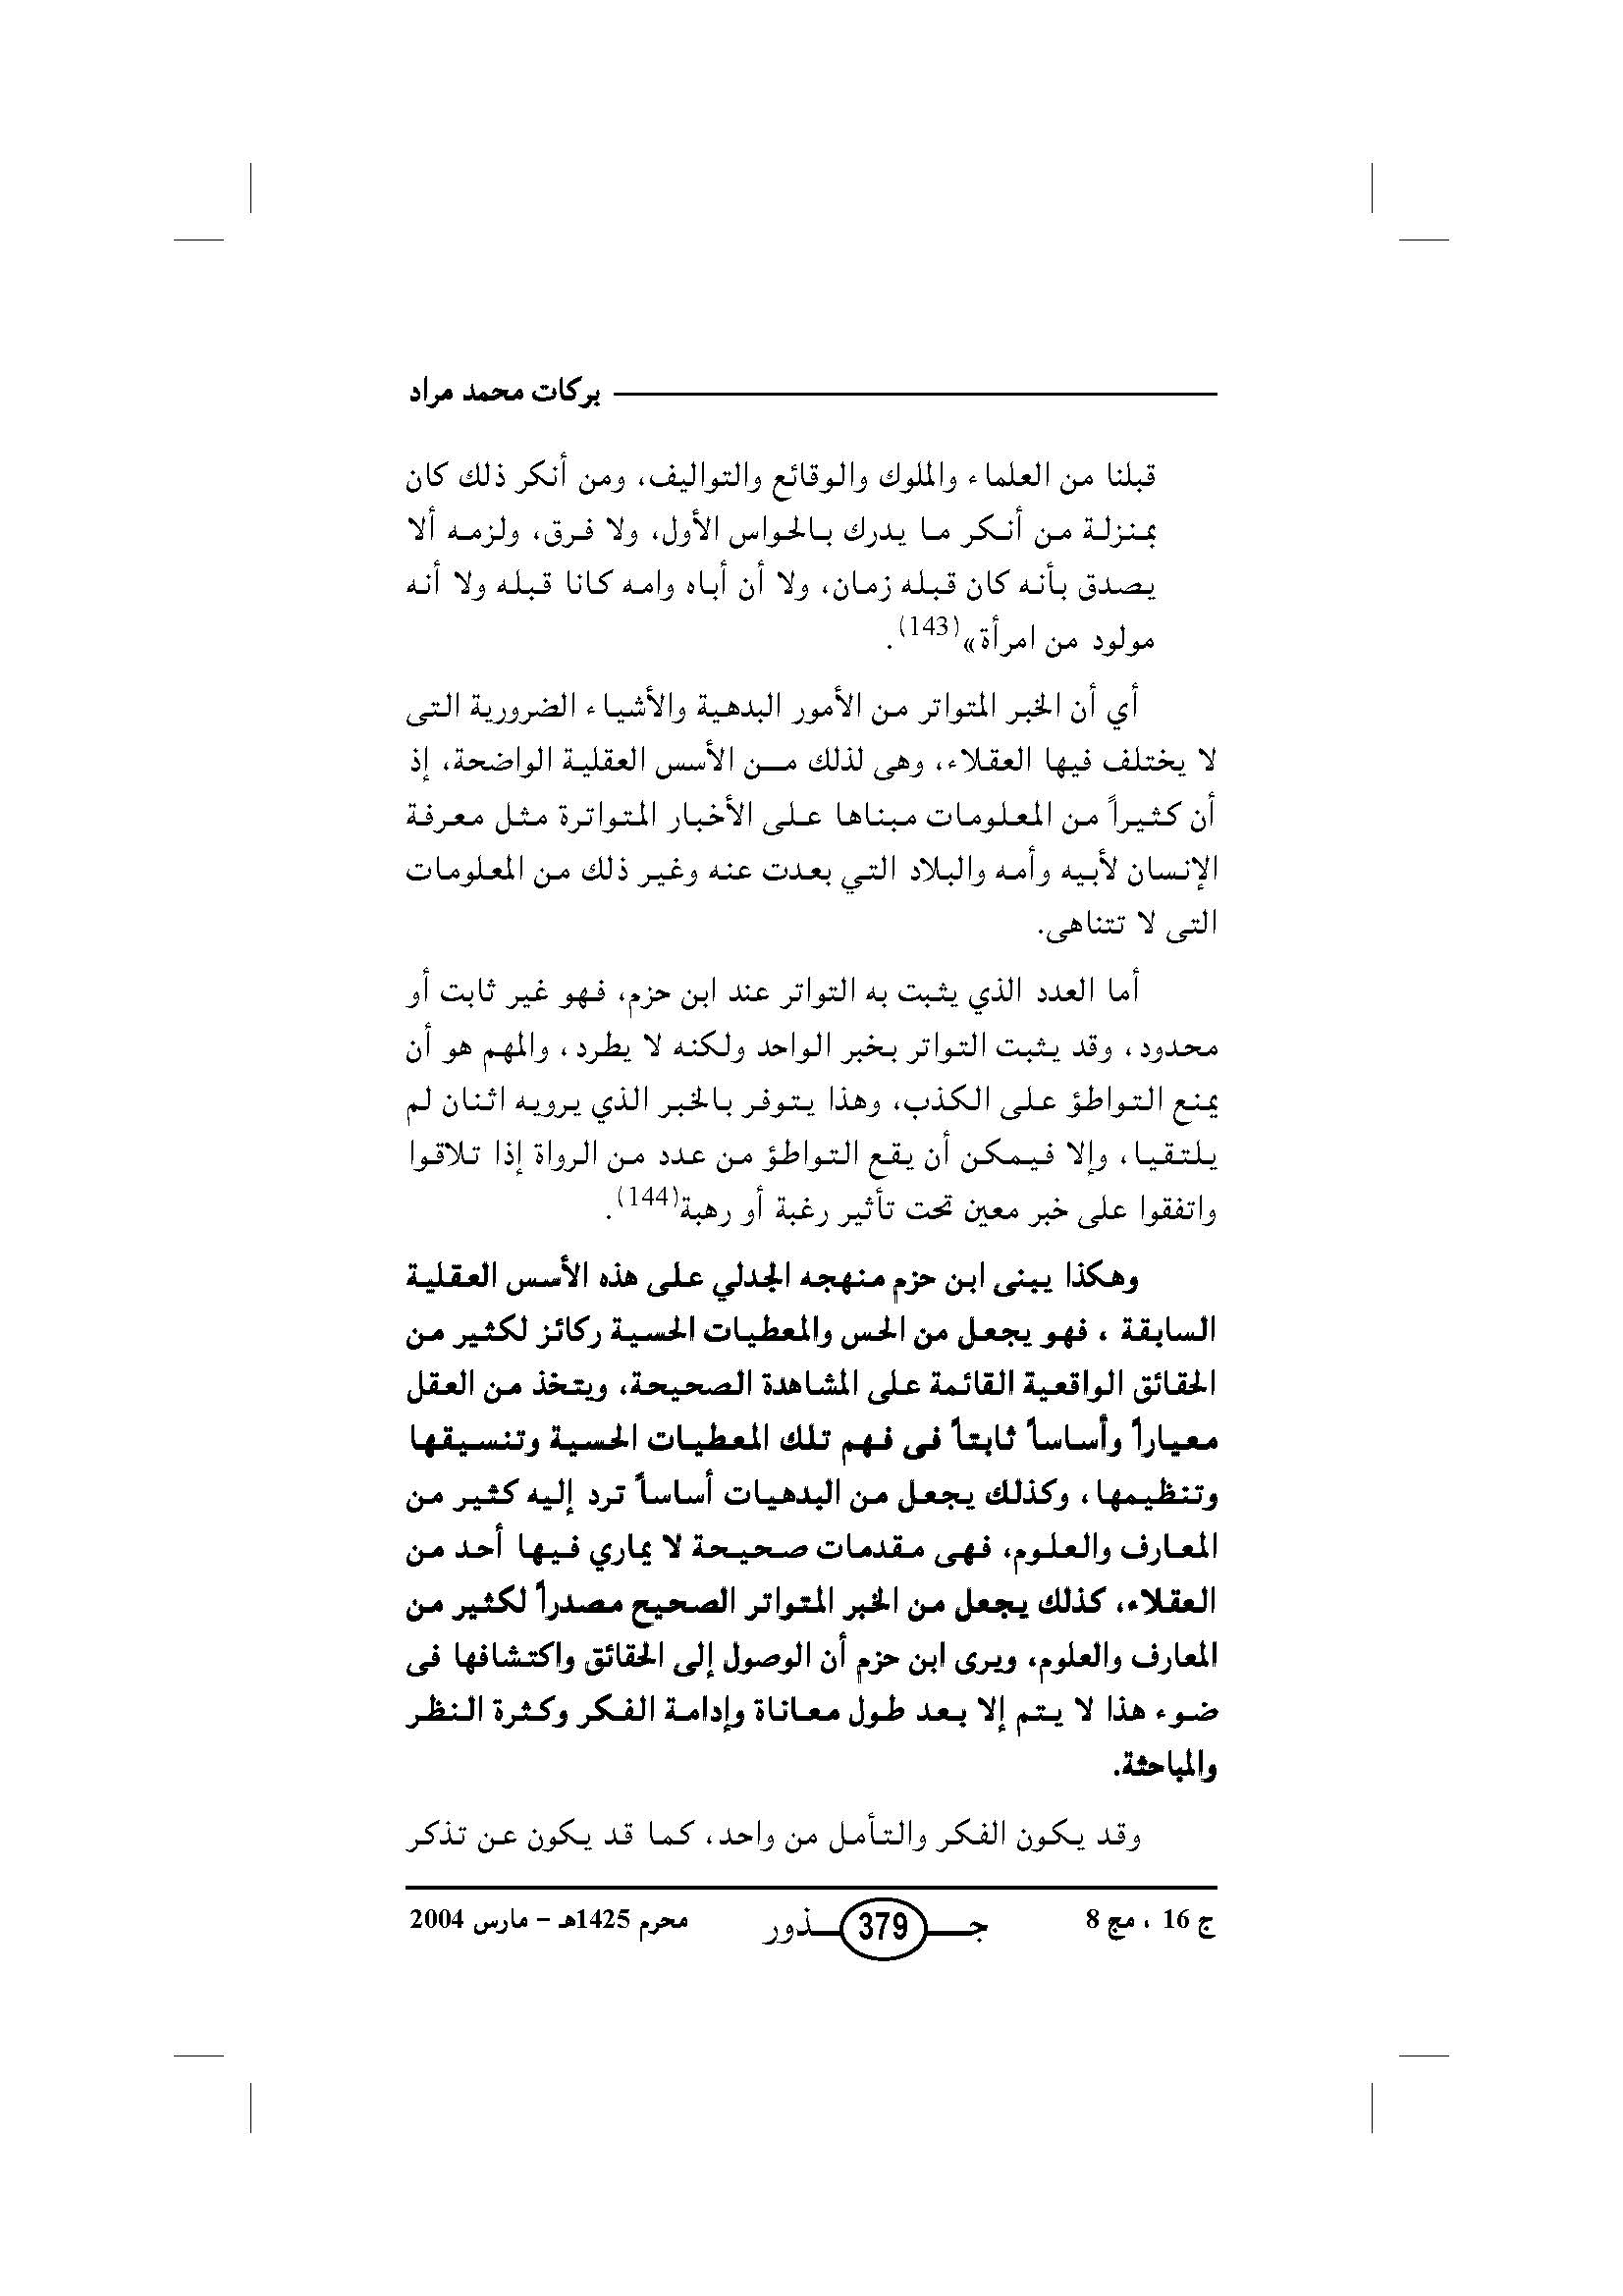 بركات محمد مراد
قبلنا من العلماء والملوك والوقائع والتواليف، ومن أنكر ذلك كان
بمنزلة من أنكر ما يدرك بالحواس الأول، ولا فرق، ولزمه ألا
يصدق بأنه كان قبله زمان، ولا أن أباه وامه كانا قبله ولا أنه
مولود من امرأة»(143).
أي أن الخبر المتواتر من الأمور البدهية والأشياء الضرورية التى
لا يختلف فيها العقلاء، وهى لذلك مــن الأسس العقلية الواضحة، إذ
أن كثيراً من المعلومات مبناها على الأخبار المتواترة مثل معرفة
الإنسان لأبيه وأمه والبلاد التي بعدت عنه وغير ذلك من المعلومات
التى لا تتناهى.
أما العدد الذي يثبت به التواتر عند ابن حزم، فهو غير ثابت أو
محدود، وقد يثبت التواتر بخبر الواحد ولكنه لا يطرد، والمهم هو أن
يمنع التواطؤ على الكذب، وهذا يتوفر بالخبر الذي يرويه اثنان لم
يلتقيا، وإلا فيمكن أن يقع التواطؤ من عدد من الرواة إذا تلاقوا
واتفقوا على خبر معين تحت تأثير رغبة أو رهبة(144).
وهكذا يبنى ابن حزم منهجه الجدلي على هذه الأسس العقلية
السابقة ، فهو يجعل من الحس والمعطيات الحسية ركائز لكثير من
الحقائق الواقعية القائمة على المشاهدة الصحيحة، ويتخذ من العقل
معياراً وأساساً ثابتاً فى فهم تلك المعطيات الحسية وتنسيقها
وتنظيمها، وكذلك يجعل من البدهيات أساساً ترد إليه كثير من
المعارف والعلوم، فهى مقدمات صحيحة لا يماري فيها أحد من
العقلاء، كذلك يجعل من الخبر المتواتر الصحيح مصدراً لكثير من
المعارف والعلوم، ويرى ابن حزم أن الوصول إلى الحقائق واكتشافها فى
ضوء هذا لا يتم إلا بعد طول معاناة وإدامة الفكر وكثرة النظر
والمباحثة.
وقد يكون الفكر والتأمل من واحد، كما قد يكون عن تذكر
ج 16 ، مج 8 جـــ 379 ــذور محرم 1425هـ - مارس 2004